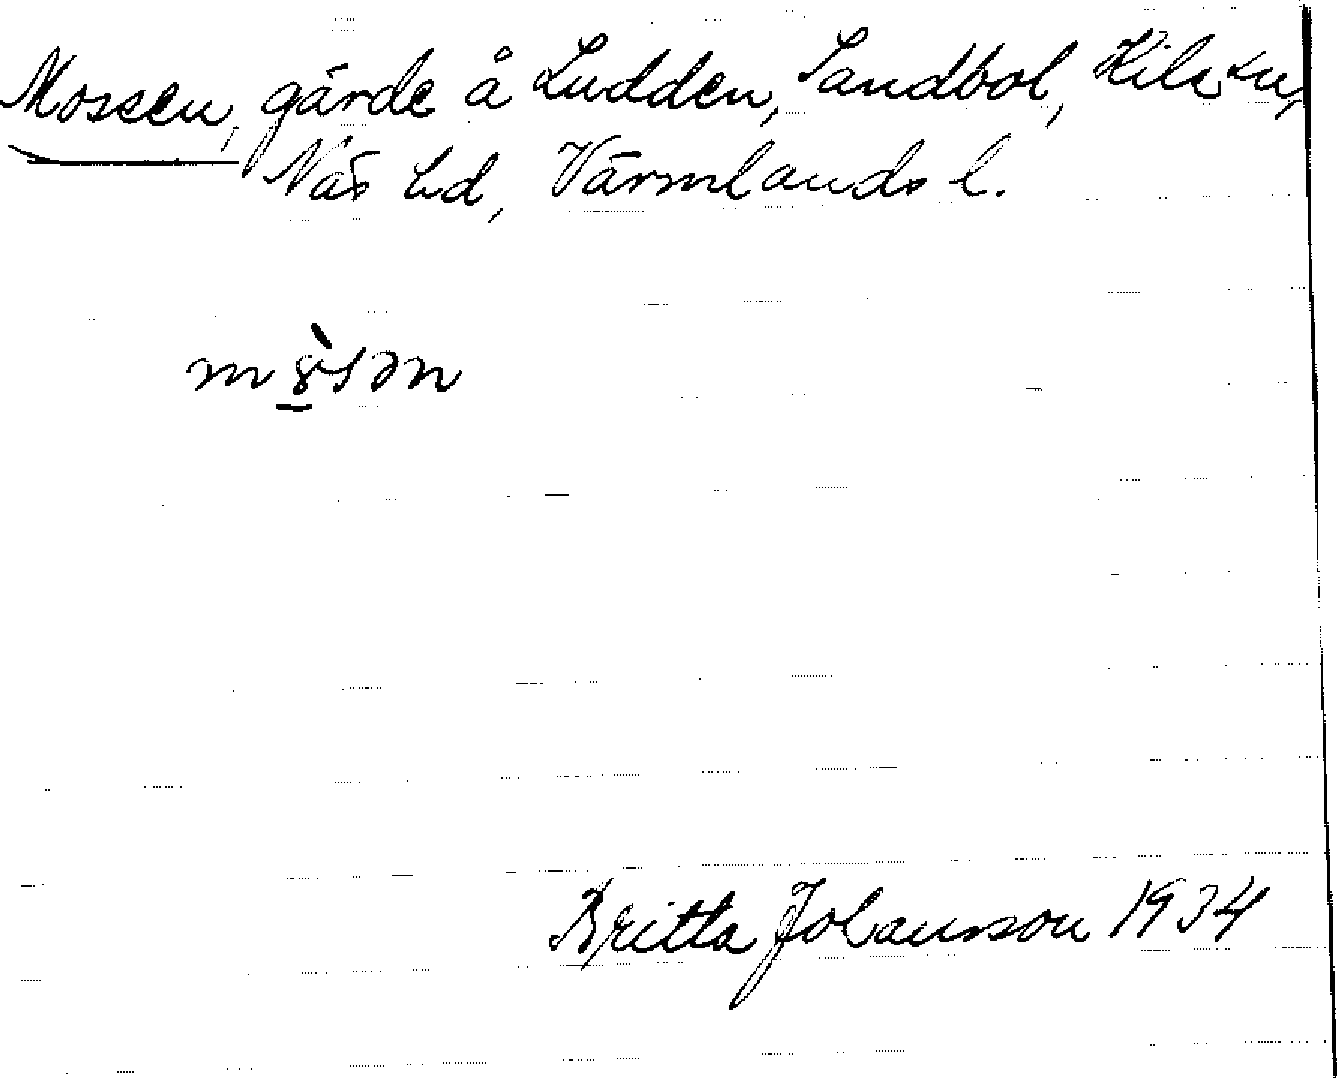 Mossen, gärde å Ludden, Sandbol, Kila sn,
Näs hd, Värmlands l.
Britta Johansson 1934